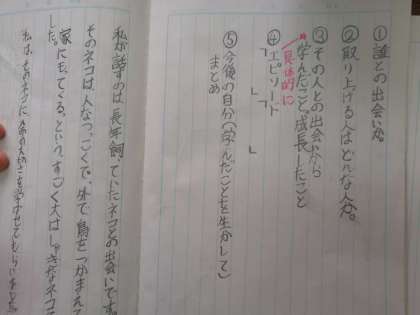 ①誰との出会いか。
②取り上げる人はどんな人か。
③その人との出会いから
学んだこと、成長したこと
具体的に
④エピソード
「　」「　」
⑤今後の自分(学んだことを生かして)
まとめ
私が話すのは、長年飼っていたネコとの出会いです。
そのネコは、人なつっこくて、外で鳥をつかまえて
家にもってくる、という、すごくおはしゃぎなネコで
した。
私は、そのネコに命の大切さを学ばせてもらいました。